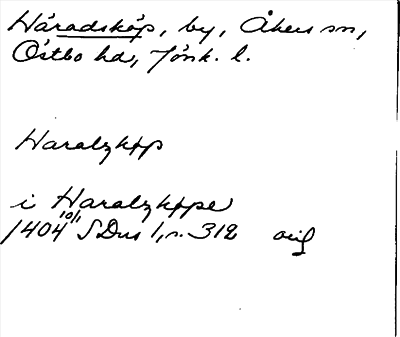 Häradsköp, by, Åkers sn,
Östbo hd, Jönk. l.
Haralzkøp
i Haralzkøpe
1404 10/1 SDns 1, n. 312 orig